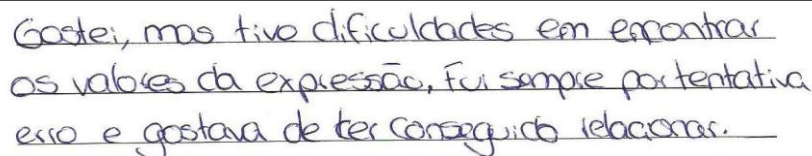 Gostei, mas tive dificuldades em encontrar
os valores da expressão, fui sempre por tentativa
erro e gostava de ter conseguido relacionar.